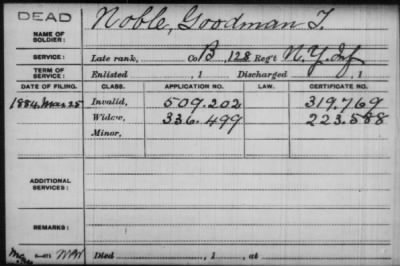 DEAD
NAME OF SOLDIER: Noble, Goodman T.
SERVICE: Late rank, Co B, 128 Reg't N.Y. Inf
TERM OF SERVICE: Enlisted , 1 Discharged , 1
DATE OF FILING. CLASS. APPLICATION NO. LAW. CERTIFICATE NO.
1884, Mar 25 Invalid, 509.202 319.769
Widow, 336.499 223.588
Minor,
ADDITIONAL SERVICES:
REMARKS:
Died , 1 , at